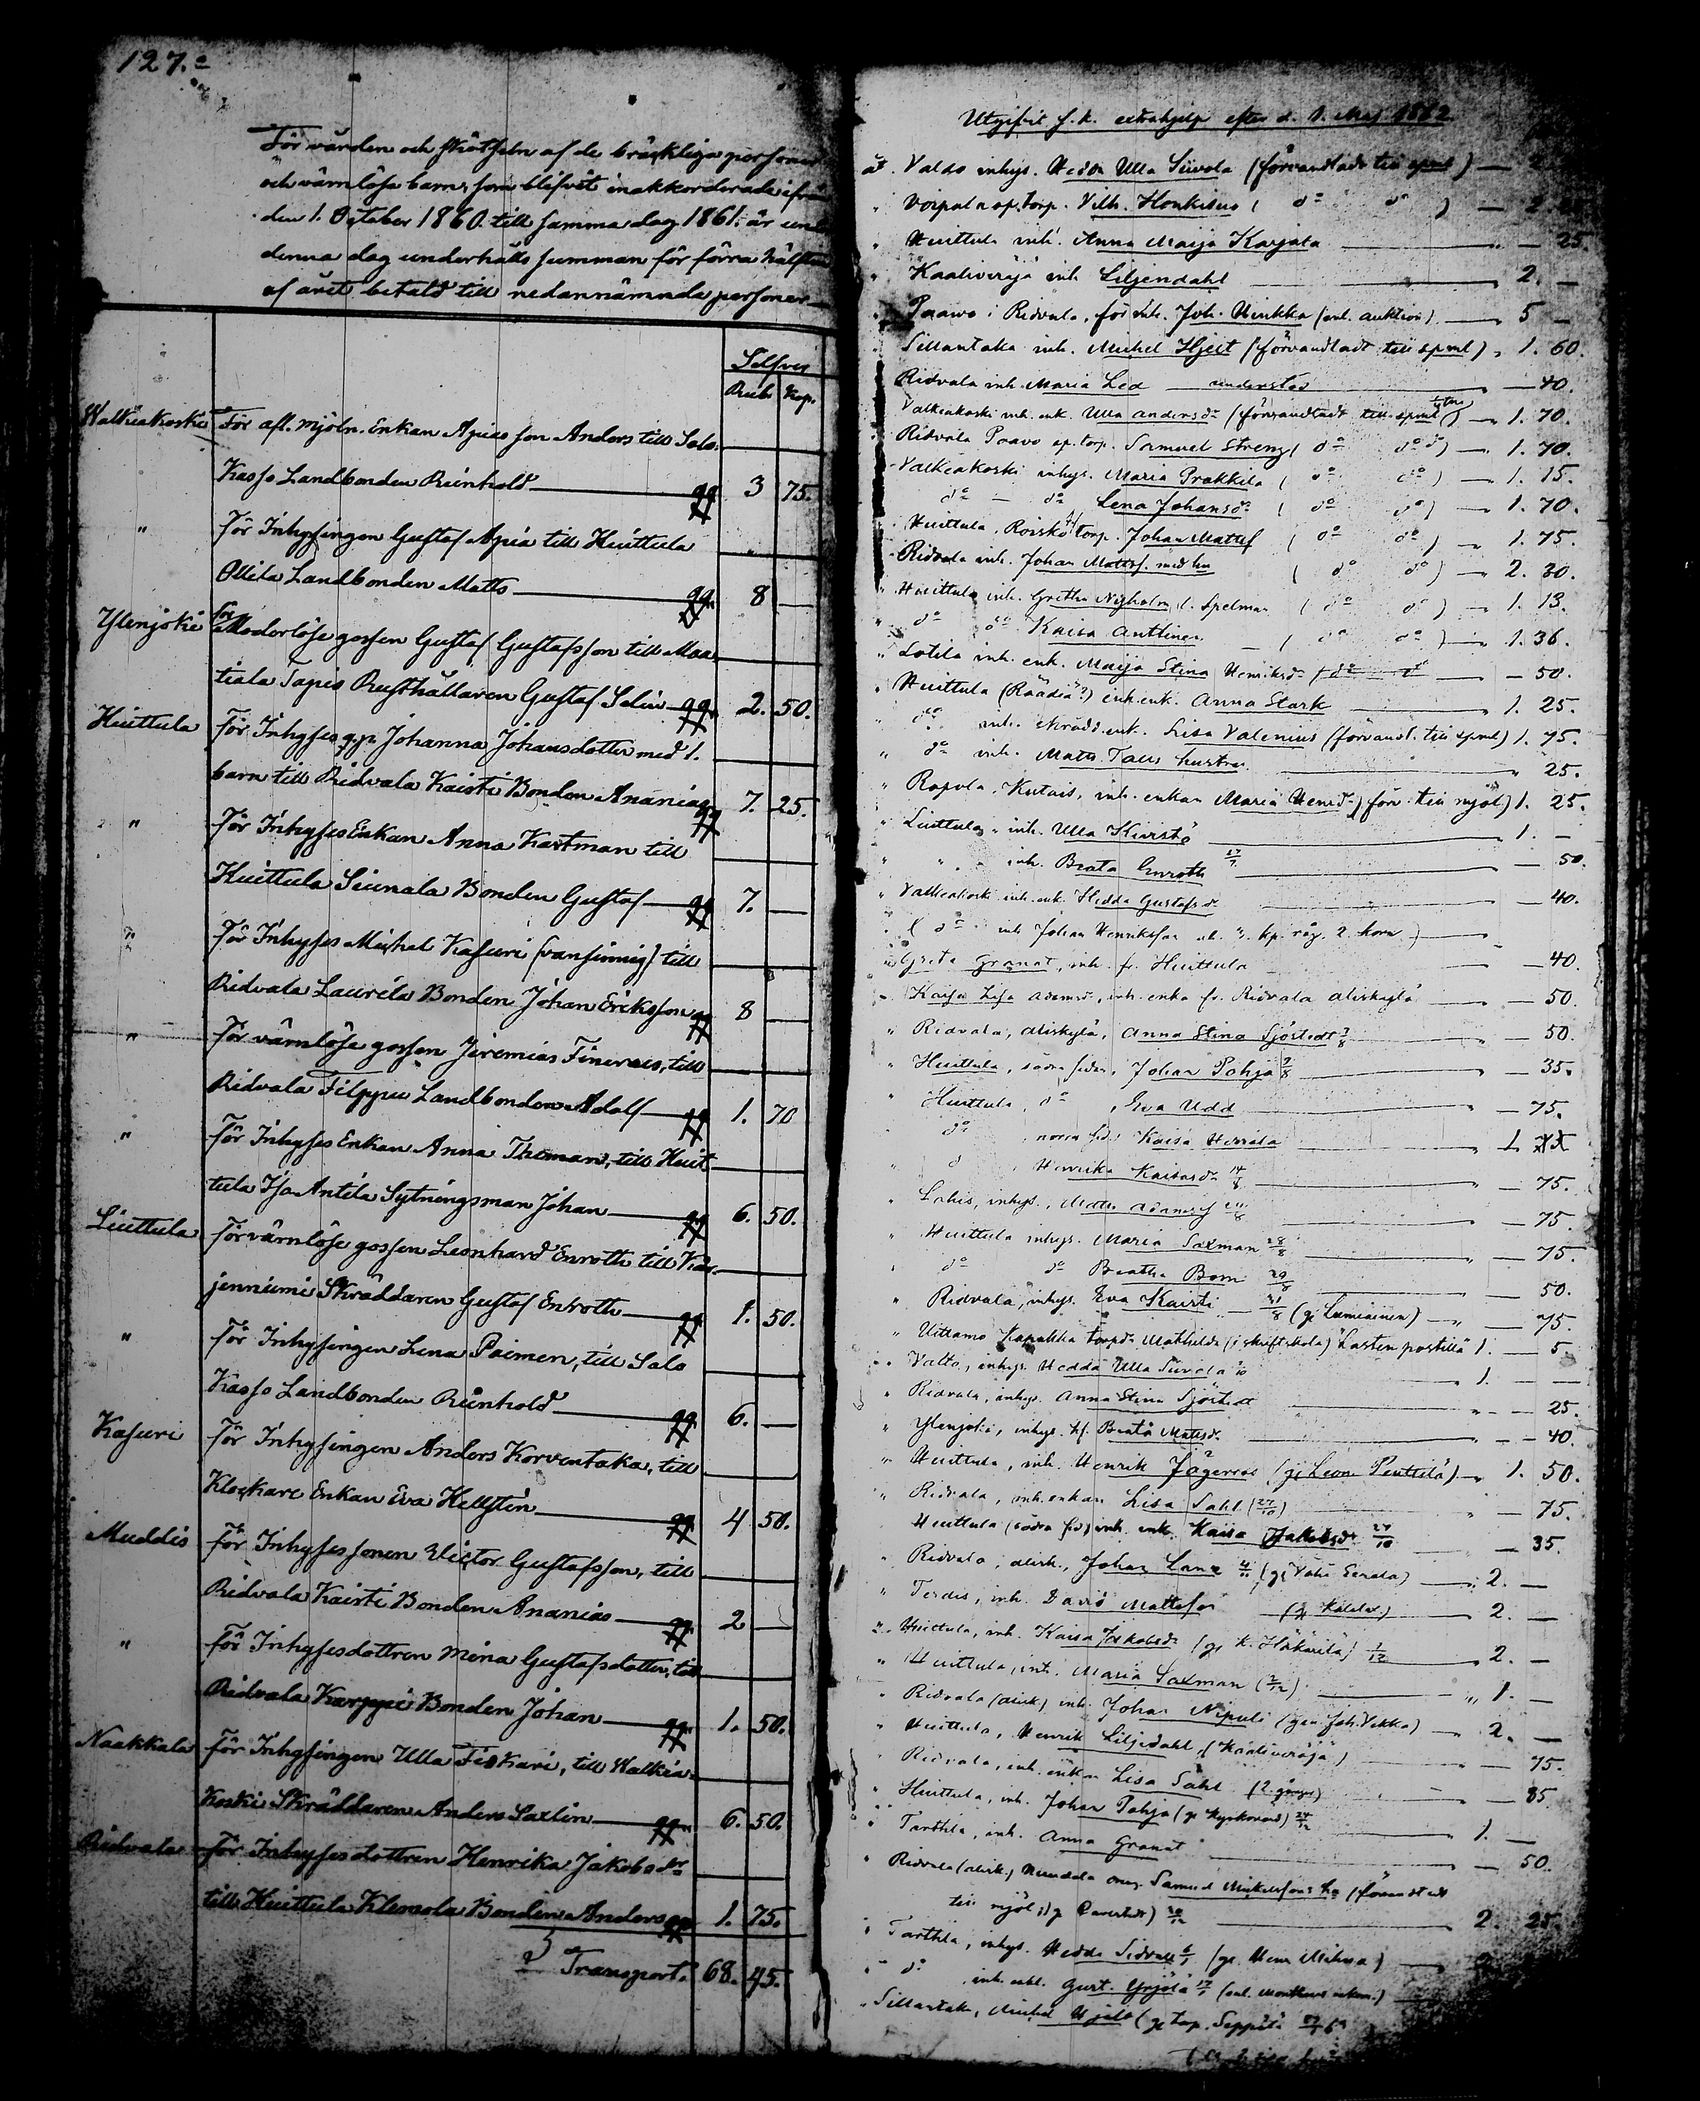 127.
För vården och skötseln af de bräckliga personer
och värnlösa barn, som blifvit inakkorderade ifrån
den 1. October 1860. till samma dag 1861. är under
denna dag underhålls summan för förra hälften
af året betald till nedannämnda personer
Silfver
Rub. Kop.
Walkiakoski För afl. mjöln. Enkan Apias son Anders till Salo
Kasso Landbonden Reinhold qq 3 75.
" För Inhysingen Gustaf Apia till Huittula
Ollila Landbonden Matts qq. 8 —
Ylenjoki för Moderlöse gossen Gustaf Gustafsson till Maa
tiala Tapis Rusthållaren Gustaf Selin qq 2. 50.
Huittula För Inhyses q.p. Johanna Johansdotter med 1.
barn till Ridvala Kaisti Bonden Ananias qq 7. 25.
" För Inhyses Enkan Anna Kartman till
Huittula Seunala Bonden Gustaf qq 7. —
" För Inhyses Michel Kasuri (vansinnig) till
Ridvala Laurila Bonden Johan Eriksson qq 8 —
" För värnlöse gossen Jeremias Finerus, till
Ridvala Filppu Landbonden Adolf qq 1. 70
" För Inhyses Enkan Anna Thomasd, till Huit
tula Iso Antila Sytningsman Johan qq 6. 50.
Liuttula För värnlöse gossen Leonhard Enroth till Kär
jenniemi Skräddaren Gustaf Enroth qq 1. 50.
" För Inhysingen Lena Paimen, till Salo
Kasso Landbonden Reinhold qq. 6. —
Kasuri För Inhysingen Anders Korventaka, till
Klockare Enkan Eva Hellstén qq. 4 50.
Muddis För Inhyses sonen Victor Gustafsson, till
Ridvala Kaisti Bonden Ananias qq. 2 —
" För Inhysesdottren Mina Gustafsdotter, till
Ridvala Karppi Bonden Johan qq. 1. 50.
Naakkala För Inhysingen Ulla Fiskari, till Walkia
koski Skräddaren Anders Saxlin qq. 6. 50.
Ridvala För Inhysesdottren Henrika Jakobsdr
till Huittula Klemola Bonden Anders qq 1. 75.
Transport. 68. 45.
Utgifvit f.k. extrahjelp efter d. 1. Maj 1862
åt. Valdo inhys. Hedda Ulla Siivola (förvandladt till spml) — 2
" Voipala op. torp. Vilh. Honkisuo ( do do ) — 2
" Huittula inh. Anna Maija Karjala — 25.
" Kaaliveräjä inh. Liljendahl 2. —
" Paavo i Ridvala, för inh. Joh. Hirkka (enl. auktion) 5 —
" Sillantaka inh. Michel Hjelt (förvandladt till spml) " 1. 60.
Ridvala inh. Maria Led understöd — 40.
Valkeakoski inh. enk. Ulla Andersdr (förvandladt till spml) 1. 70.
Ridvala Paavo op. torp. Samuel Streng ( do do ) 1. 70.
Valkeakoski inhys. Maria Prakkila ( do do ) 1. 15.
do — do Lena Johansdr ( do do ) 1. 70.
Huittula, Roisko torp. Johan Mattsf ( do do ) 1. 75.
Ridvala inh. Johan Mattsf. med hu ( do do ) 2. 30.
" Huittula inh. Gretha Nyholm l. Spelman ( do do ) 1. 13.
" do do Kaisa Anttinen ( do do ) 1. 36.
" Lotila inh. enk. Maija Stina Henriksdr — 50.
" Huittula (Räädiä?) inh. enk. Anna Stark 1. 25.
do inh. skrädd. enk. Lisa Valenius (förvandl. till spml) 1. 75.
" do inh. Matts Talls hustru 25.
" Rapola, Kutais, inh. enkan Maria Henrdr (förv. till mjöl) 1. 25.
" Liuttula, inh. Ulla Kiristö 1. —
" " inh. Beata Enroth 27/7 — 50.
" Valkeakoski inh. enk. Hedda Gustafsdr — 40.
" ( do inh Johan Henriksson kp. råg. 2. korn )
" Greta Granat, inh. fr. Huittula — 40.
" Kaisa Lisa Adamsdr, inh. enka fr. Ridvala Aliskylä — 50.
" Ridvala, Aliskylä, Anna Stina Sjöstedt — 50.
" Huittula, södra sidan, Johan Pohja — 35.
" Huittula, do, Eva Udd — 75.
do, norra sid., Kaisa Herrala 1.
" d Henrika Kaisasdr 14/8 — 75.
" Lahis, inhys., Matts Adamsf — 75.
" Huittula inhys. Maria Saxman 28/8 — 75.
" do do Beatha Bom 29/8 — 50.
" Ridvala, inhys. Eva Kaisti 31/8 (g. Lumiainen) — 75.
" Uittamo Kapakka torpdr Mathilda (i skriftskola) Lasten postilla 1. — 5
" Valto, inhys. Hedda Ulla Siivola 1. —
" Ridvala, inhys. Anna Stina Sjöstedt — 25.
" Ylenjoki, inhys. Beata Mattsdr — 40.
" Huittula, inh. Henrik Jägerroos (g. Leon. Penttilä) 1. 50.
" Ridvala, inh. enkan Lisa Sahl (27/10) — 75.
" Huittula (södra sid) inh. enk. Kaisa Jakobsdr 27/10 — 35.
" Ridvala, alisk., Johan Lang (g. Vähä Eerala) 2. —
" Terdis, inh. David Mattsson 2. —
" Huittula, inh. Kaisa Jakobsdr (g. K. Häkärilä) 1/12 2. —
" Huittula, inh. Maria Saxman (2/12) 1. —
" Ridvala (alisk) inh. Johan Nipuli (gen. Joh. Vekka) 2. —
" Huittula, Henrik Liljedahl, (Kaaliveräjä) — 75.
" Ridvala, inh. enkan Lisa Sahl (2. gånger) — 85
" Huittula, inh. Johan Pohja (g. Kyrkovard) 1. —
" Tarttila, inh. Anna Granat — 50.
" Ridvala (alisk) Mundala Samuel Mickelssons hu (förvandladt
till mjöl) 2. 25.
" Tarttila, inhys. Hedda Sidvall (g. Hemm Mikma)
" do, inh. Gust. Yrjölä
" Sillantaka, Michel Hjelt (g. torp. Seppälä